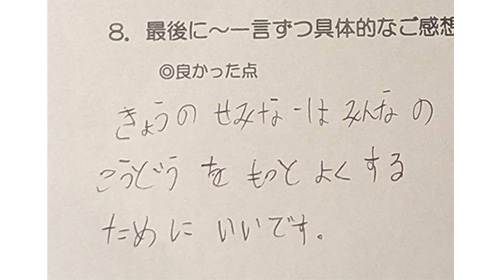 8. 最後に～一言ずつ具体的なご感想
◎良かった点
きょうの せみなーは みんなの
こうどう を もっと よく する
ために いいです。